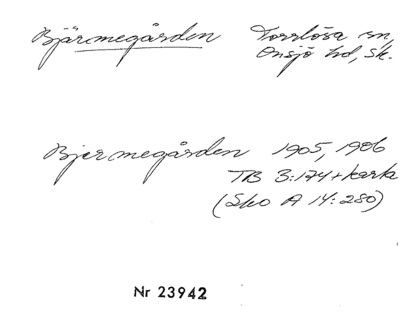 Bjärmegården Torrlösa sn,
Onsjö hd, Sk.
Bjermegården 1905, 1906
TB 3:174 + karta
(Sko A 14:280)
Nr 23942